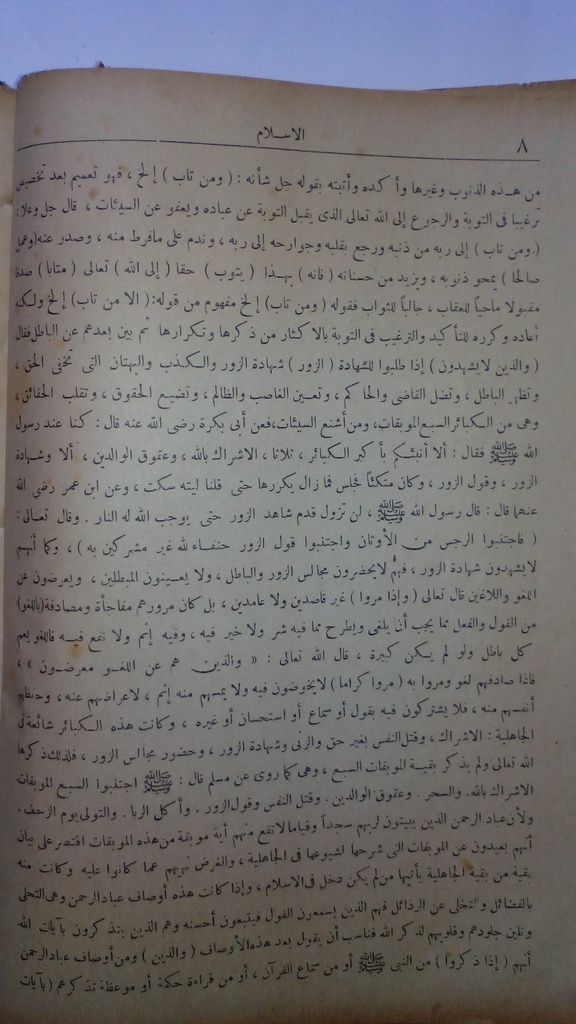 ٨
الاسلام
من هذه الذنوب وغيرها وأكده وأثبته بقوله جل شأنه : ( ومن تاب ) إلخ ، فهو تعميم بعد تخصيص
ترغيبا فى التوبة والرجوع إلى الله تعالى الذى يقبل التوبة عن عباده ويعفو عن السيئات ، قال جل وعلا :
( ومن تاب ) إلى ربه من ذنبه ورجع بقلبه وجوارحه إلى ربه ، وندم على مافرط منه ، وصدر عنه (وعمل
صالحا ) يمحو ذنوبه ، ويزيد من حسناته ( فانه ) بهذا ( يتوب ) حقا ( إلى الله ) تعالى ( متابا ) صدقا
مقبولا ماحياً للعقاب ، جالباً للثواب فقوله ( ومن تاب) إلخ مفهوم من قوله : ( الا من تاب) إلخ ولكنه
أعاده وكرره للتأكيد والترغيب فى التوبة بالاكثار من ذكرها وتكرارها ثم بين بعدهم عن الباطل فقال
( والذين لايشهدون ) إذا طلبوا للشهادة ( الزور ) شهادة الزور والكذب والبهتان التى تخفى الحق ،
وتظهر الباطل ، وتضل القاضى والحاكم ، وتعين الغاصب والظالم ، وتضيع الحقوق ، وتقلب الحقائق ،
وهى من الكبائر السبع الموبقات، ومن أشنع السيئات، فعن أبى بكرة رضى الله عنه قال : كنا عند رسول
الله ﷺ فقال : ألا أنبئكم بأكبر الكبائر ، ثلاثا ، الاشراك بالله ، وعقوق الوالدين ، ألا وشهادة
الزور ، وقول الزور ، وكان متكئاً فجلس فما زال يكررها حتى قلنا ليته سكت ، وعن ابن عمر رضى الله
عنهما قال : قال رسول الله ﷺ ، لن تزول قدم شاهد الزور حتى يوجب الله له النار . وقال تعالى :
( فاجتنبوا الرجس من الأوثان واجتنبوا قول الزور حنفاء لله غير مشركين به ) ، وكما أنهم
لايشهدون شهادة الزور ، فهم لايحضرون مجالس الزور والباطل ، ولا يعينون المبطلين ، ويعرضون عن
اللغو واللاغين قال تعالى ( وإذا مروا ) غير قاصدين ولا عامدين ، بل كان مرورهم مفاجأة ومصادفة (باللغو)
من القول والفعل مما يجب أن يلغى ويطرح مما فيه شر ولا خير فيه ، وفيه إثم ولا نفع فيه فاللغو يعم
كل باطل ولو لم يكن كبيرة ، قال الله تعالى : « والذين هم عن اللغو معرضون » ،
فاذا صادفهم لغو ومروا به ( مروا كراما ) لايخوضون فيه ولا يمسهم منه إثم ، لاعراضهم عنه ، وحفظهم
أنفسهم منه ، فلا يشتركون فيه بقول أو سماع أو استحسان أو غيره ، وكانت هذه الكبائر شائعة فى
الجاهلية : الاشراك ، وقتل النفس بغير حق والزنى وشهادة الزور ، وحضور مجالس الزور ، فلذلك ذكرها
الله تعالى ولم يذكر بقية الموبقات السبع ، وهى كما روى عن مسلم قال : ﷺ اجتنبوا السبع الموبقات
الاشراك بالله. والسحر . وعقوق الوالدين . وقتل النفس وقول الزور . وأكل الربا . والتولى يوم الزحف .
ولأن عباد الرحمن الذين يبيتون لربهم سجداً وقياما لاتقع منهم أية موبقة من هذه الموبقات اقتصر على بيان
أنهم بعيدون عن الموبقات التى شرحها لشيوعها فى الجاهلية ، والغرض عما كانوا عليه وكانت منه
بقية من بقية الجاهلية يأتيها من لم يكن دخل فى الاسلام ، وإذا كانت هذه أوصاف عباد الرحمن وهى التحلى
بالفضائل والتخلى عن الرذائل فهم الذين يسمعون القول فيتبعون أحسنه وهم الذين يتذكرون بآيات الله
وتلين جلودهم وقلوبهم لذكر الله فناسب أن يقول بعد هذه الأوصاف ( والذين ) ومن أوصاف عباد الرحمن
أنهم ( إذا ذكروا ) من النبى ﷺ أو من سماع القرآن ، أو من قراءة حكمة أو موعظة تذكرهم ( بآيات